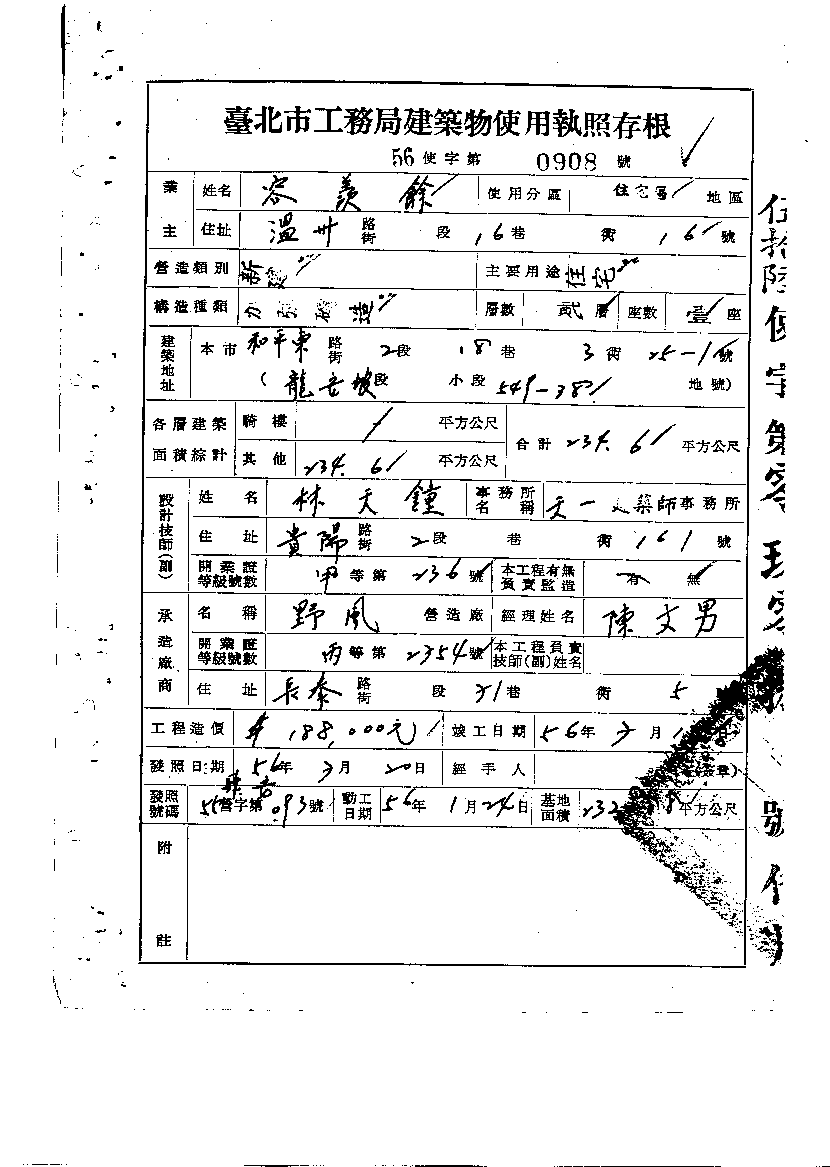 臺北市工務局建築物使用執照存根
56使字第 0908 號
業主 姓名 容羨餘 使用分區 住宅區 地區
住址 溫州 路街 段 16巷 街 16 號
營造類別 新建 主要用途 住宅
構造種類 加強磚造 層數 貳層 座數 壹座
建築地址 本市 和平東 路街 2段 18巷 3街 25-1號
(龍安坡段 小段 549-38 地號)
各層建築面積綜計 騎樓 / 平方公尺 合計 234.61 平方公尺
其他 234.61 平方公尺
設計技師(副) 姓名 林天鐘 事務所名稱 天一建築師事務所
住址 貴陽 路街 2段 巷 街 161號
開業證等級號數 甲等第 236號 本工程有無負責監造 有 無
承造廠商 名稱 野風 營造廠 經理姓名 陳文男
開業證等級號數 丙等第 2354號 本工程負責技師(副)姓名
住址 長泰 路街 段 31巷 街 5
工程造價 $188,000元 竣工日期 56年 3月 1 日
發照日期 56年 3月 20日 經手人 章)
發照號碼 55營字第093號 動工日期 56年 1月24日 基地面積 232 8平方公尺
附註
伍拾陸使字第零玖零 號